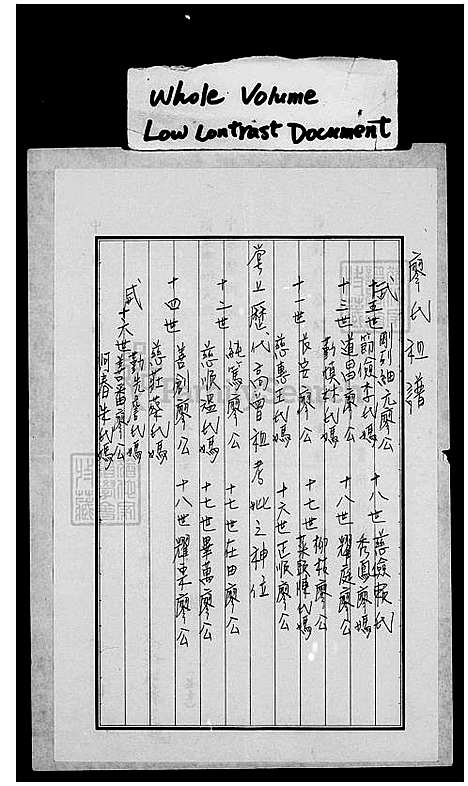 Whole Volume
Low Contrast Document
廖氏祖譜
十五世 剛列細元廖公 節儉李氏媽 十八世 慈儉賴氏 秀鳳廖媽
十三世 道昌廖公 勤慎林氏媽 十八世 耀庭廖公
十一世 長安廖公 慈惠王氏媽 十七世 廖公 陳氏媽 十六世 正順廖公
堂上歷代高曾祖考妣之神位
十二世 純篤廖公 慈順溫氏媽 十七世 在田廖公 十七世 畢萬廖公
十四世 善創廖公 慈莊蔡氏媽 十八世 耀東廖公
貳 十六世 善番廖公 勤先詹氏媽 阿春朱氏媽